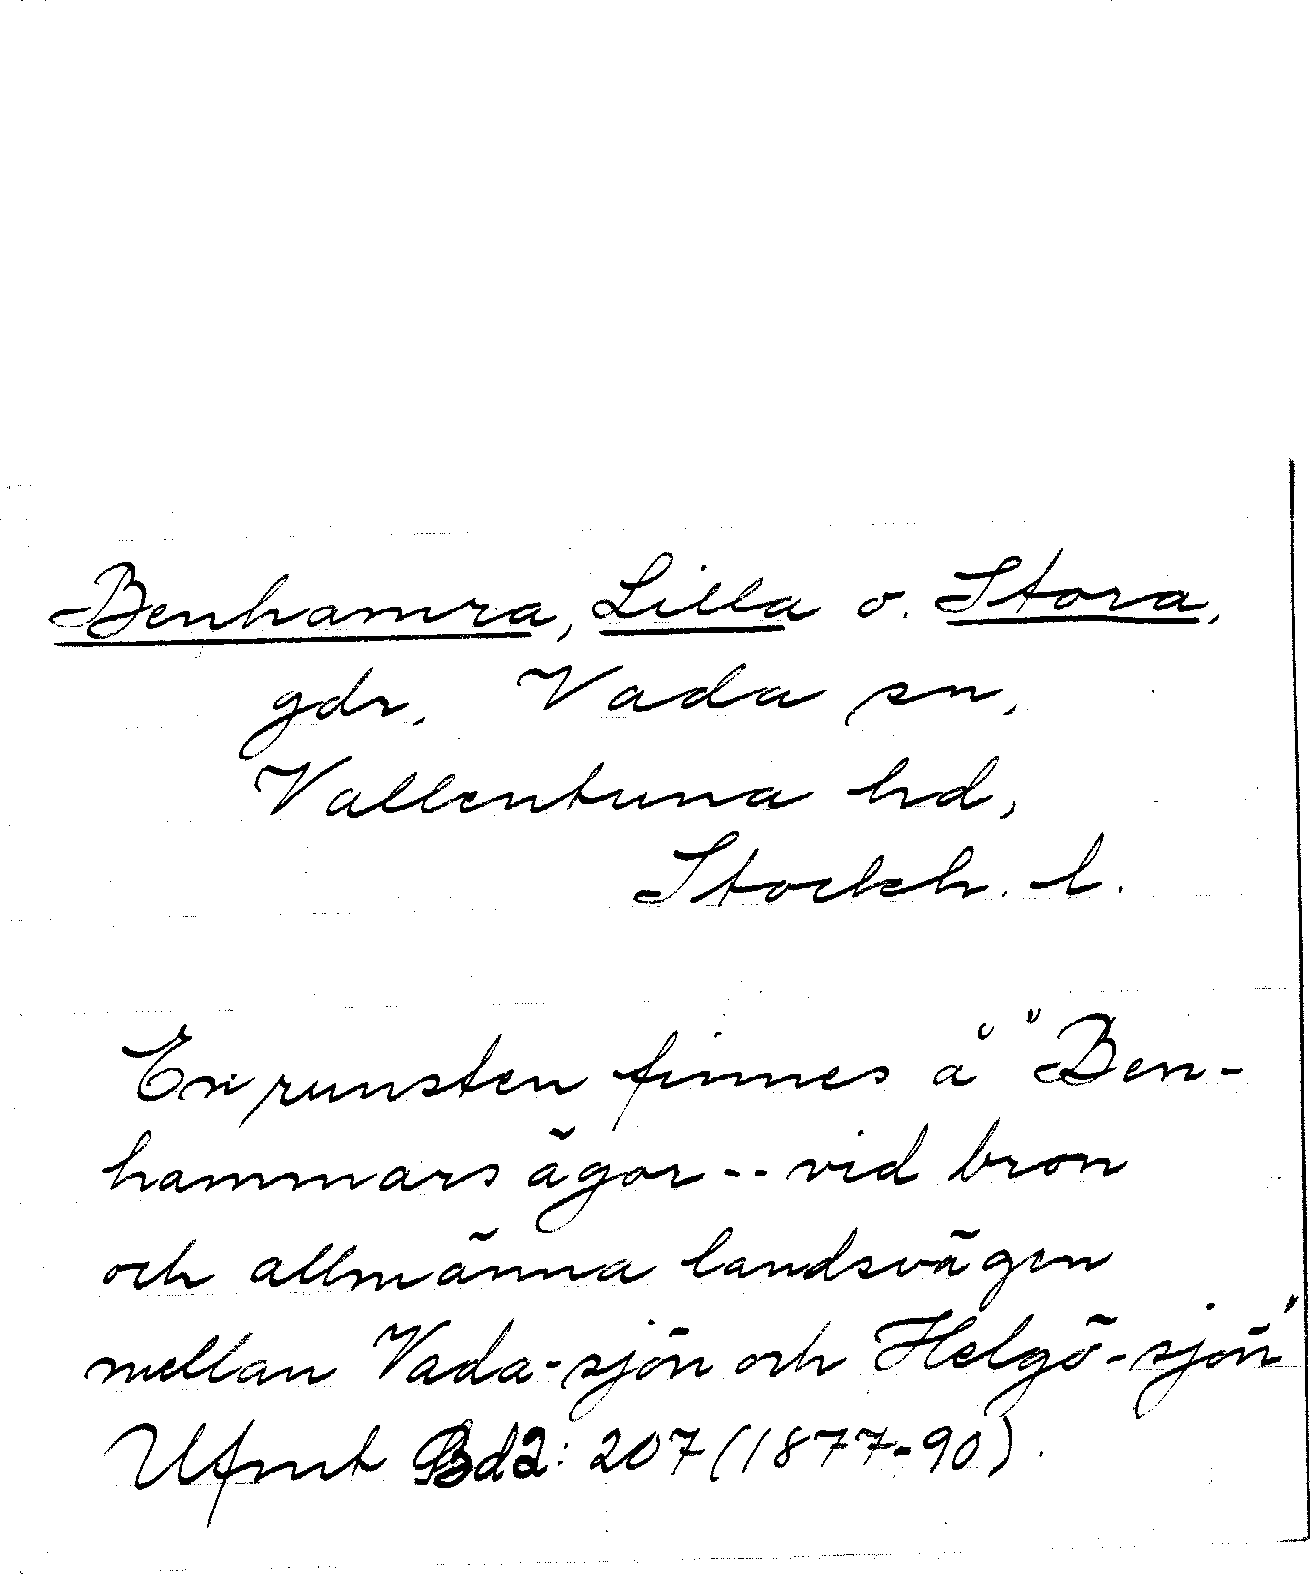 Benhamra, Lilla o. Stora,
gdr. Vada sn,
Vallentuna hd,
Stockh. l.
En runsten finnes å "Ben-
hammars ägor -- vid bron
och allmänna landsvägen
mellan Vada-sjön och Helgö-sjön"
Ufmt Bd2: 207 (1877-90).